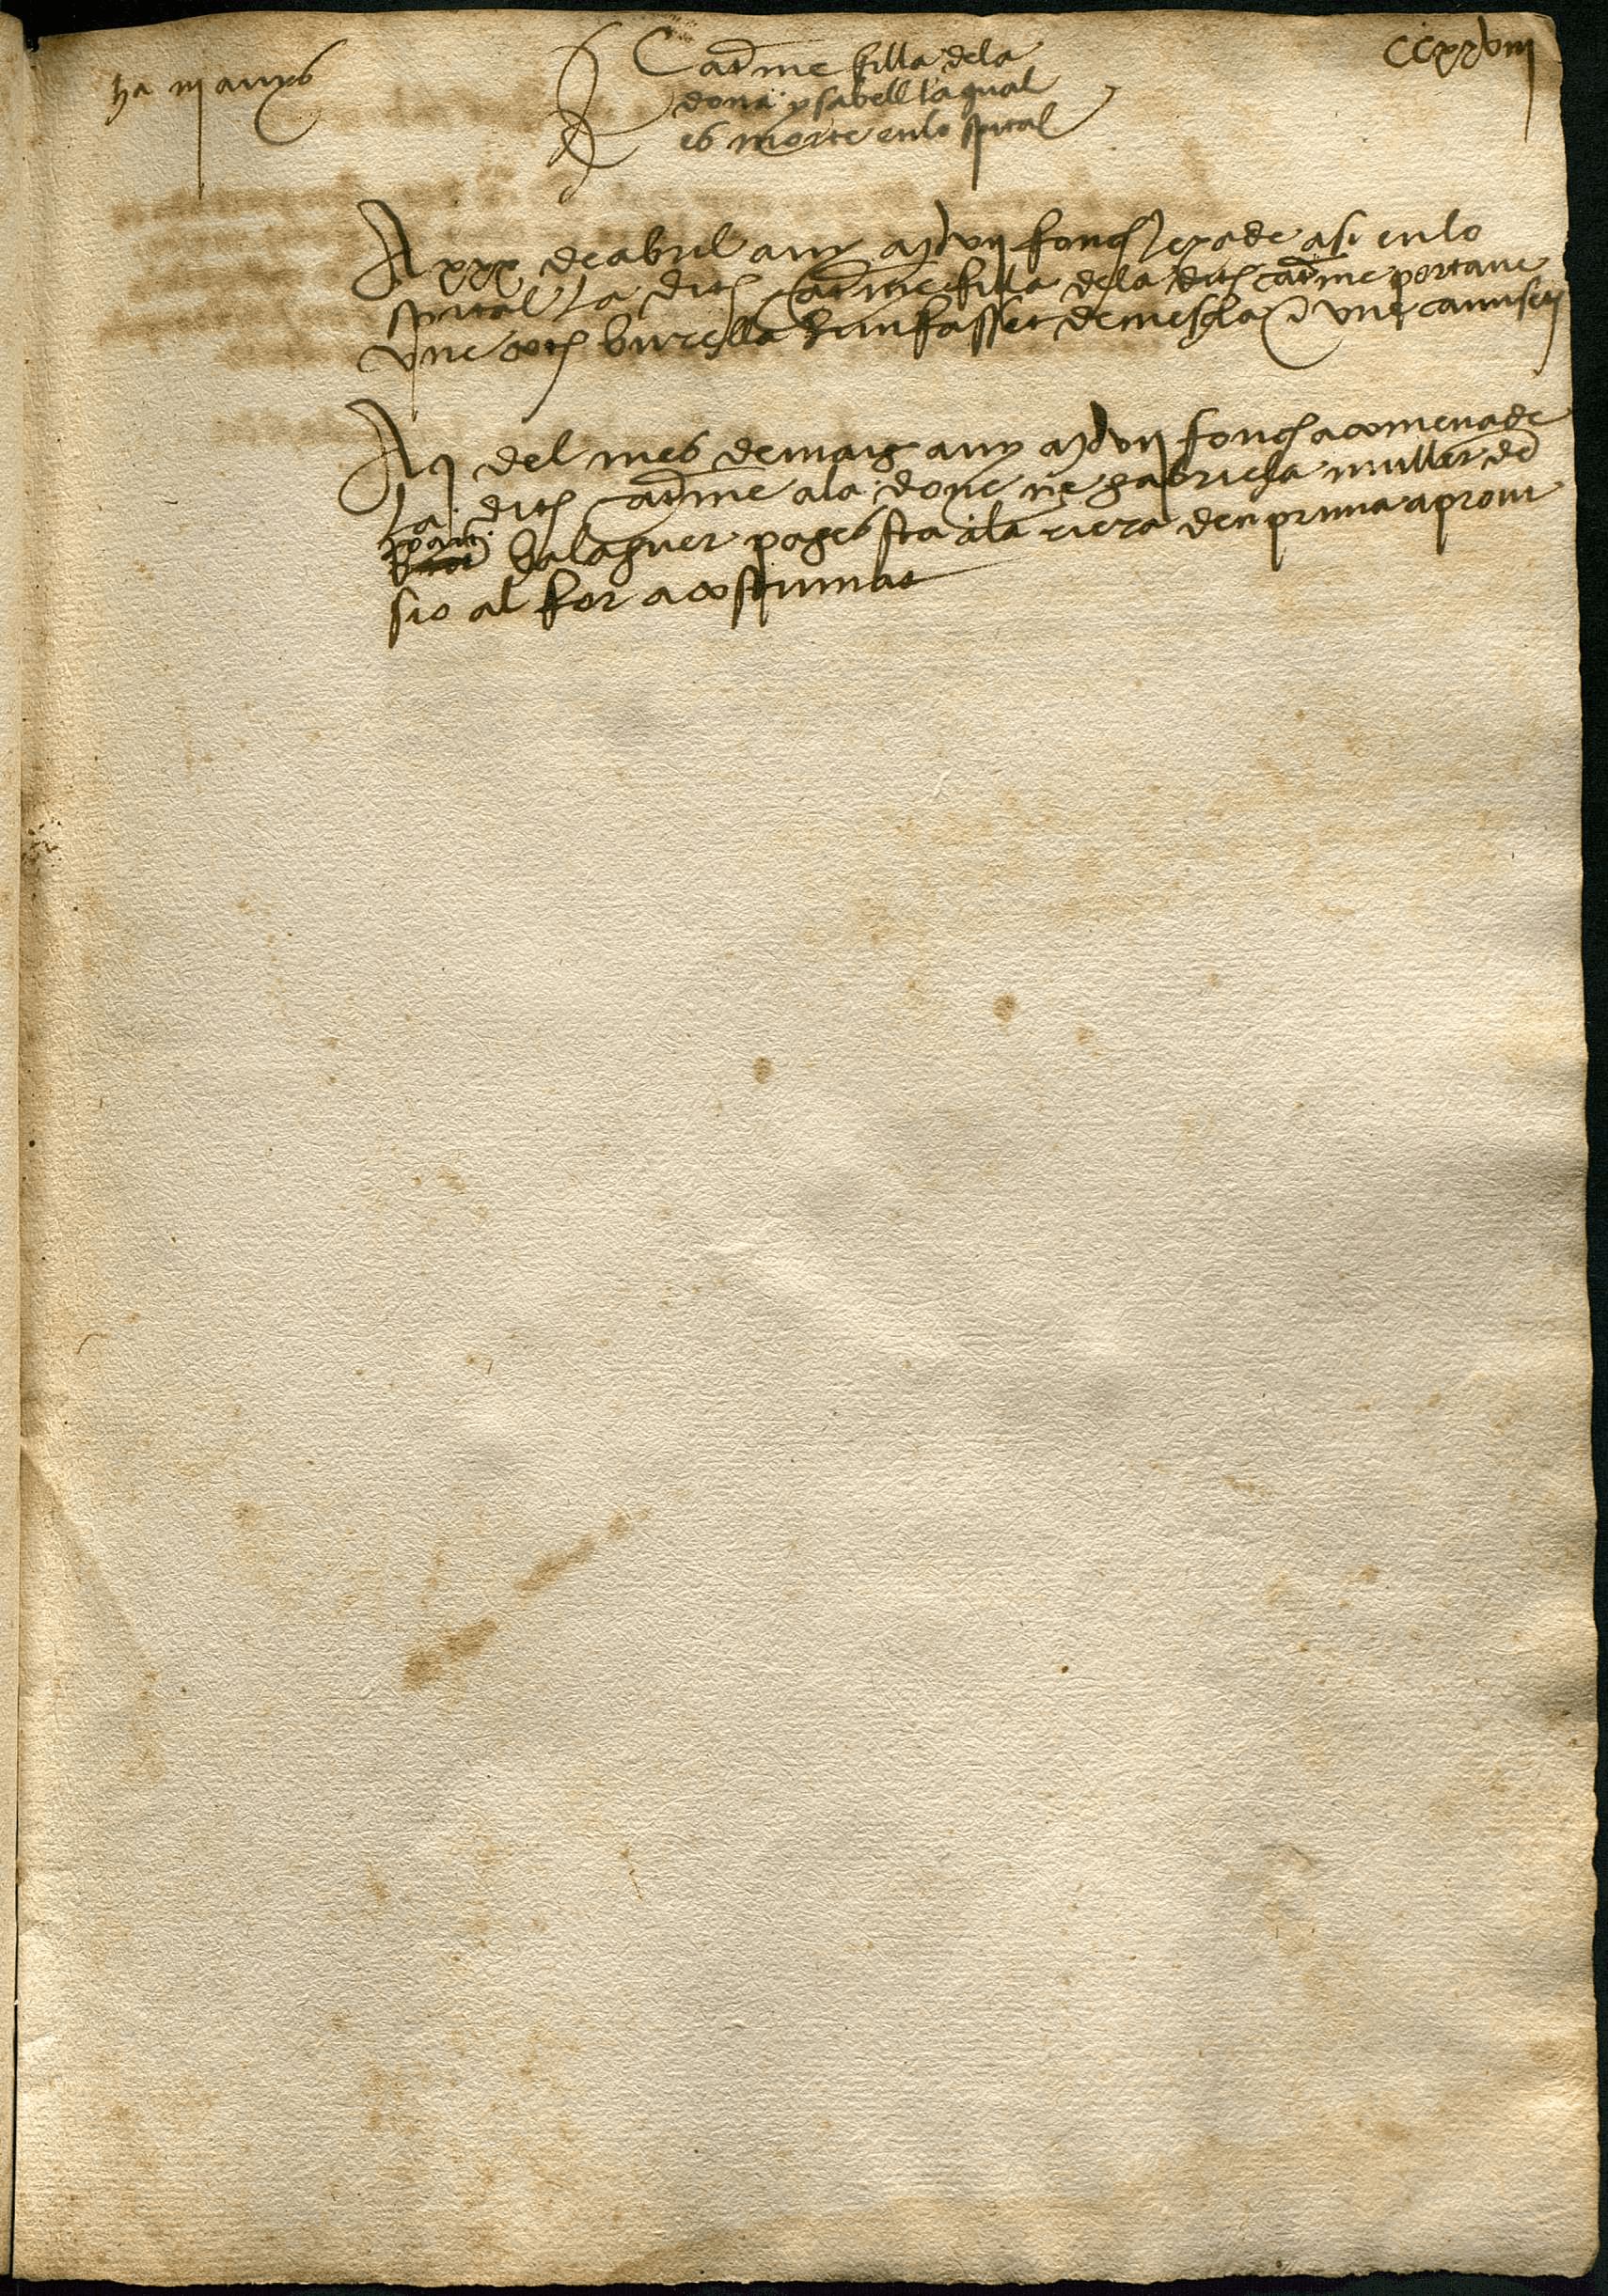 ha iij anys
CCxxviij
Catͣine filla dela
dona ysabell laqual
es morte enlo spital
A xxx de abril any mdvij fonch lexade asi enlo
spital la dita catͣine filla dela dita catͣine portave
vne cota burella hun fasset demescla i vne camiseta
A j del mes demaig any mdvij fonch acomenade
la dita catͣine ala done ne gabriela muller de
balaguer pages sta ala riera den pruna a provi
sio al for acostumat